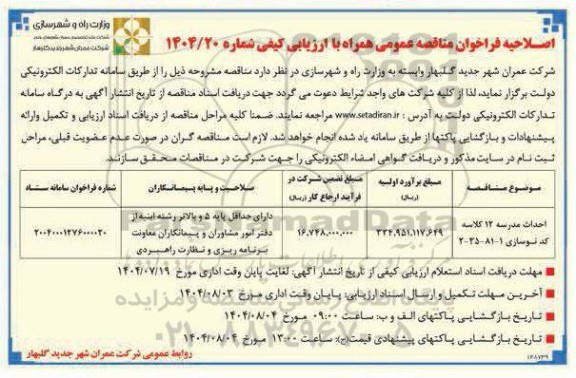 وزارت راه و شهرسازی
شرکت عمران شهر جدید گلبهار
اصلاحیه فراخوان مناقصه عمومی همراه با ارزیابی کیفی شماره ۱۴۰۴/۲۰
شرکت عمران شهر جدید گلبهار وابسته به وزارت راه و شهرسازی در نظر دارد مناقصه مشروحه ذیل را از طریق سامانه تدارکات الکترونیکی
دولت برگزار نماید، لذا از کلیه شرکت های واجد شرایط دعوت می گردد جهت دریافت اسناد مناقصه از تاریخ انتشار آگهی به درگاه سامانه
تدارکات الکترونیکی دولت به آدرس : www.setadiran.ir مراجعه نمایند. ضمنا کلیه مراحل مناقصه از دریافت اسناد ارزیابی و تکمیل وارائه
پیشنهادات و بازگشایی پاکتها از طریق سامانه یاد شده انجام خواهد شد. لازم است مناقصه گران در صورت عدم عضویت قبلی، مراحل
ثبت نام در سایت مذکور و دریافت گواهی امضاء الکترونیکی را جهت شرکت در مناقصات محقق سازند.
موضوع مناقصه
مبلغ برآورد اولیه (ریال)
مبلغ تضمین شرکت در فرآیند ارجاع کار (ریال)
صلاحیت و پایه پیمانکاران
شماره فراخوان سامانه ستاد
احداث مدرسه ۱۲ کلاسه
کد نوسازی ۱-۸۱-۳۵-۲
۳۳۴,۹۵۱,۱۱۷,۶۴۹
۱۶,۷۴۸,۰۰۰,۰۰۰
دارای حداقل پایه ۵ و بالاتر رشته ابنیه از
دفتر امور مشاوران و پیمانکاران معاونت
برنامه ریزی و نظارت راهبردی
۲۰۰۴۰۰۰۱۲۷۶۰۰۰۰۲۰
مهلت دریافت اسناد استعلام ارزیابی کیفی از تاریخ انتشار آگهی: لغایت پایان وقت اداری مورخ ۱۴۰۴/۰۷/۱۹
آخرین مهلت تکمیل و ارسال اسناد ارزیابی: پایان وقت اداری مورخ ۱۴۰۴/۰۸/۰۳
تاریخ بازگشایی پاکتهای الف و ب: ساعت ۰۹:۰۰ مورخ ۱۴۰۴/۰۸/۰۴
تاریخ بازگشایی پاکتهای پیشنهادی قیمت(ج): ساعت ۱۳:۰۰ مورخ ۱۴۰۴/۰۸/۰۴
روابط عمومی شرکت عمران شهر جدید گلبهار